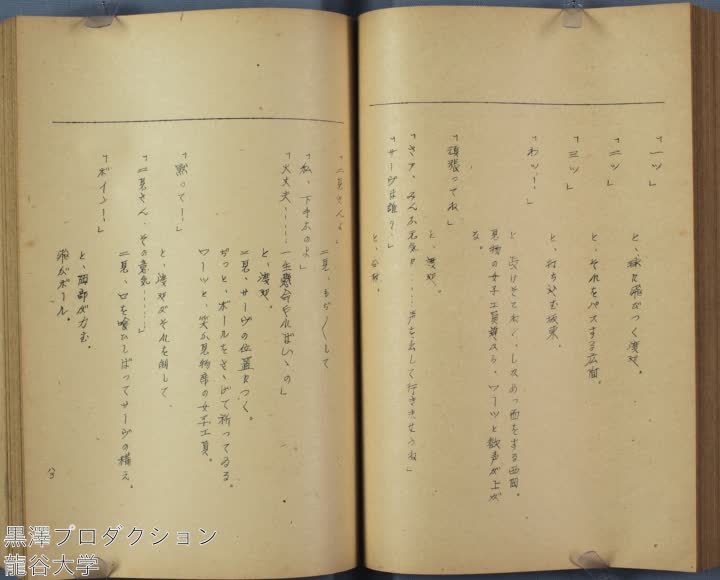 「一ツ」
と、球に飛びつく渡辺。
「二ツ」
と、それをパスする広田。
「三ツ」
と、打ち込む坂東。
「わッ!」
と、受けそこねて、しかめっ面をする西岡。
見物の女子工員達から、ワーッと歓声が上が
る。
「頑張ってね」
と、渡辺。
「さア、みんな元気を……声を出して行きませうね」
「サーヴは誰?」
と、谷村。
「二見さんよ」
二見、もぢ〱して
「私、下手なのよ」
「大丈夫、……一生懸命やればいゝの」
と、渡辺。
二見、サーヴの位置につく。
ぢっと、ボールをさゝげて祈ってゐる。
ワーッと、笑ふ見物席の女子工員。
「黙って!」
と、渡辺がそれを制して
「二見さん、その意気……」
二見、口を喰ひしばってサーヴの構え。
「ボイン!」
と、西部が力む。
飛ぶボール。
黒澤プロダクション
龍谷大学